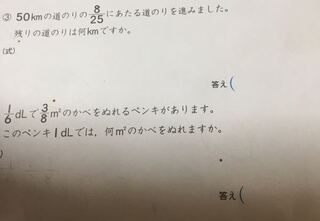 ③ 50kmの道のりの8/25にあたる道のりを進みました。
残りの道のりは何kmですか。
(式)
答え(
1/6dLで3/8m²のかべをぬれるペンキがあります。
このペンキ1dLでは，何m²のかべをぬれますか。
)
答え(